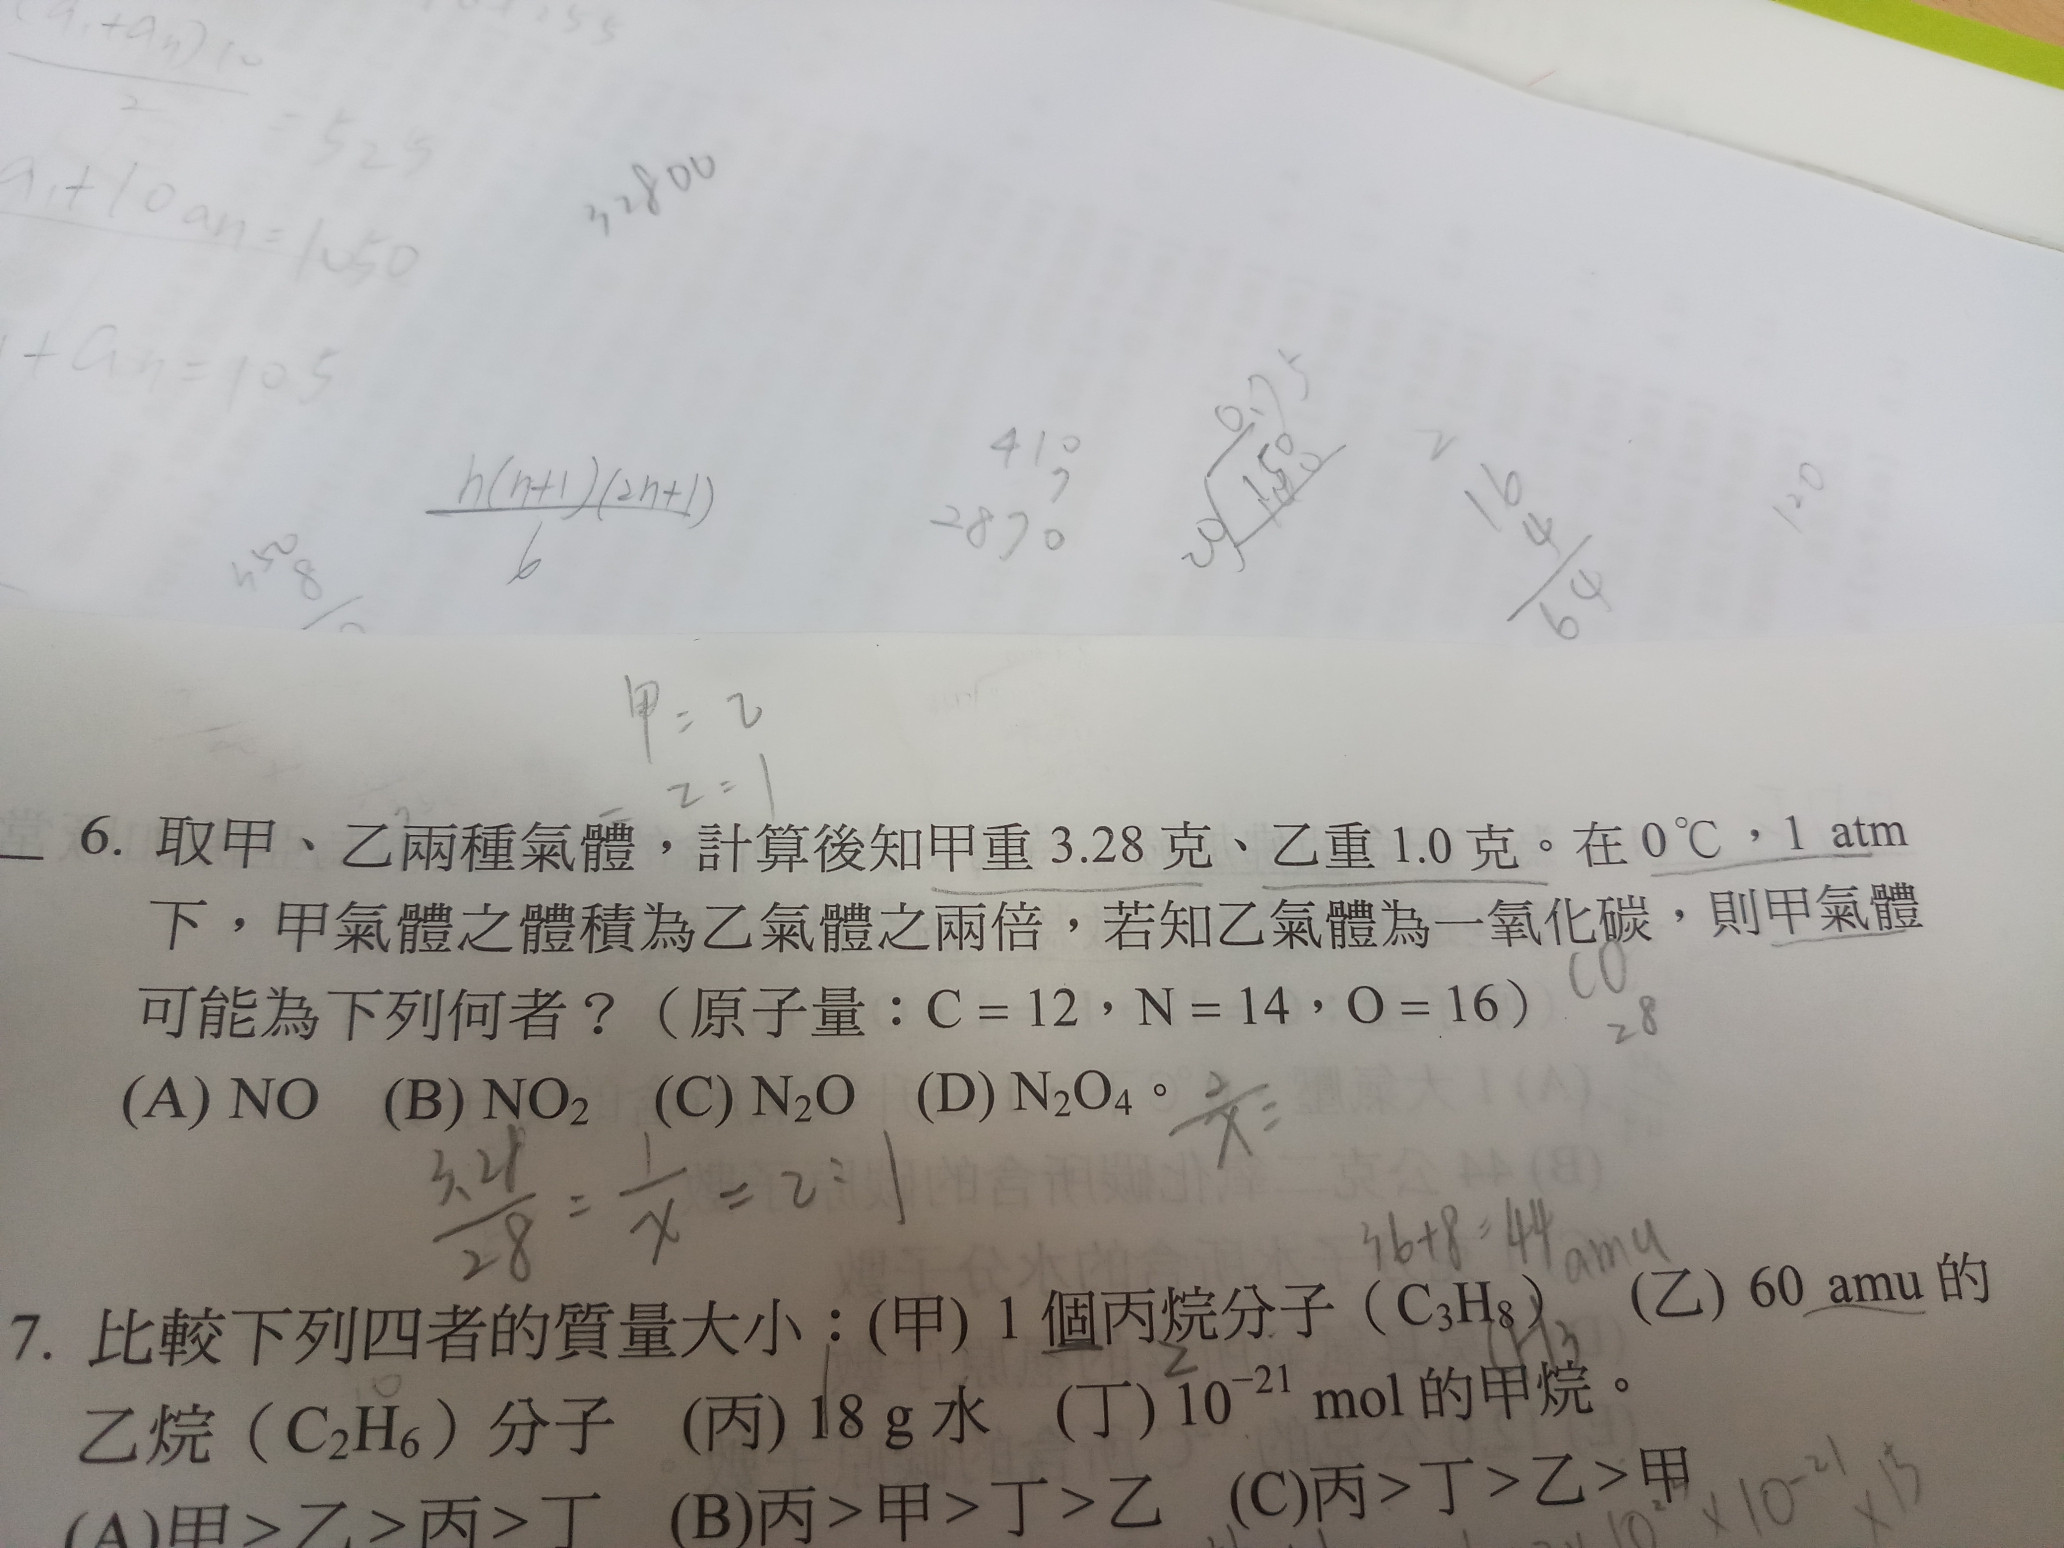 (a₁+aₙ)10
2
=525
a₁+10aₙ=1050
+aₙ=105
32800
n(n+1)(2n+1)
6
410
7
2870
16
4
64
120
甲=2
乙=1
6. 取甲、乙兩種氣體，計算後知甲重 3.28 克、乙重 1.0 克。在 0℃，1 atm
下，甲氣體之體積為乙氣體之兩倍，若知乙氣體為一氧化碳，則甲氣體
CO
可能為下列何者？（原子量：C = 12，N = 14，O = 16）
28
(A) NO (B) NO₂ (C) N₂O (D) N₂O₄。
28
= 1/x = 2:1
36+8=44amu
7. 比較下列四者的質量大小：(甲) 1 個丙烷分子（C₃H₈） (乙) 60 amu 的
乙烷（C₂H₆）分子 (丙) 18 g 水 (丁) 10⁻²¹ mol 的甲烷。
(A)甲＞乙＞丙＞丁 (B)丙＞甲＞丁＞乙 (C)丙＞丁＞乙＞甲